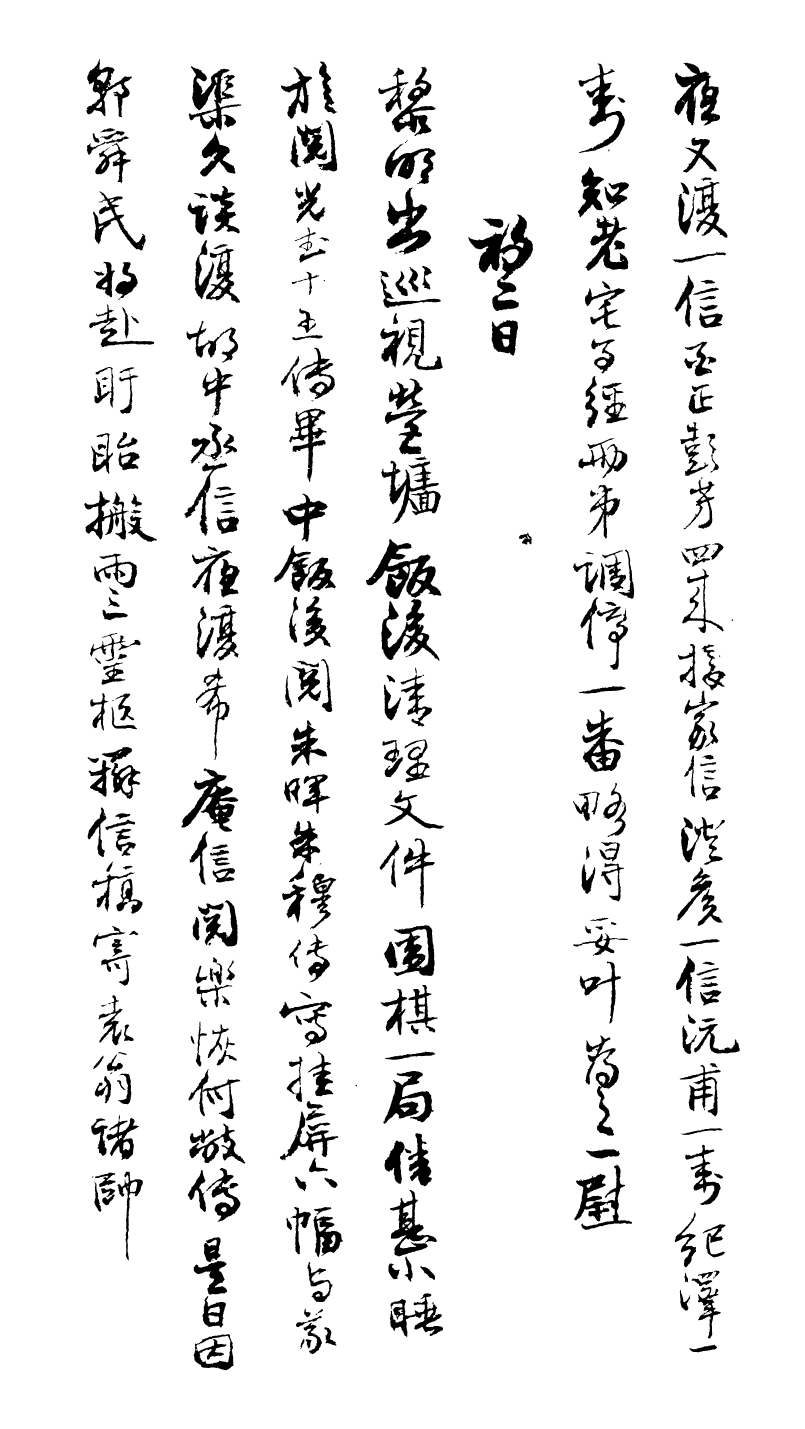 夜又渡一信至正彭芳四來接家信澄侯一信沅甫一壽紀澤一
壽知老宅子經兩弟調停一番略得妥叶為之一慰
初二日
黎明出巡視營墻飯後清理文件圍棋一局倦甚小睡
旋閱光武十王傳畢中飯後閱朱暉朱穆傳寫挂屏六幅与蒙
渠久談渡胡中丞信夜渡希庵信閱樂恢何敞傳是日因
郭舜民將赴盱眙搬雨三靈柩辦信稿寄袁翁諸帥